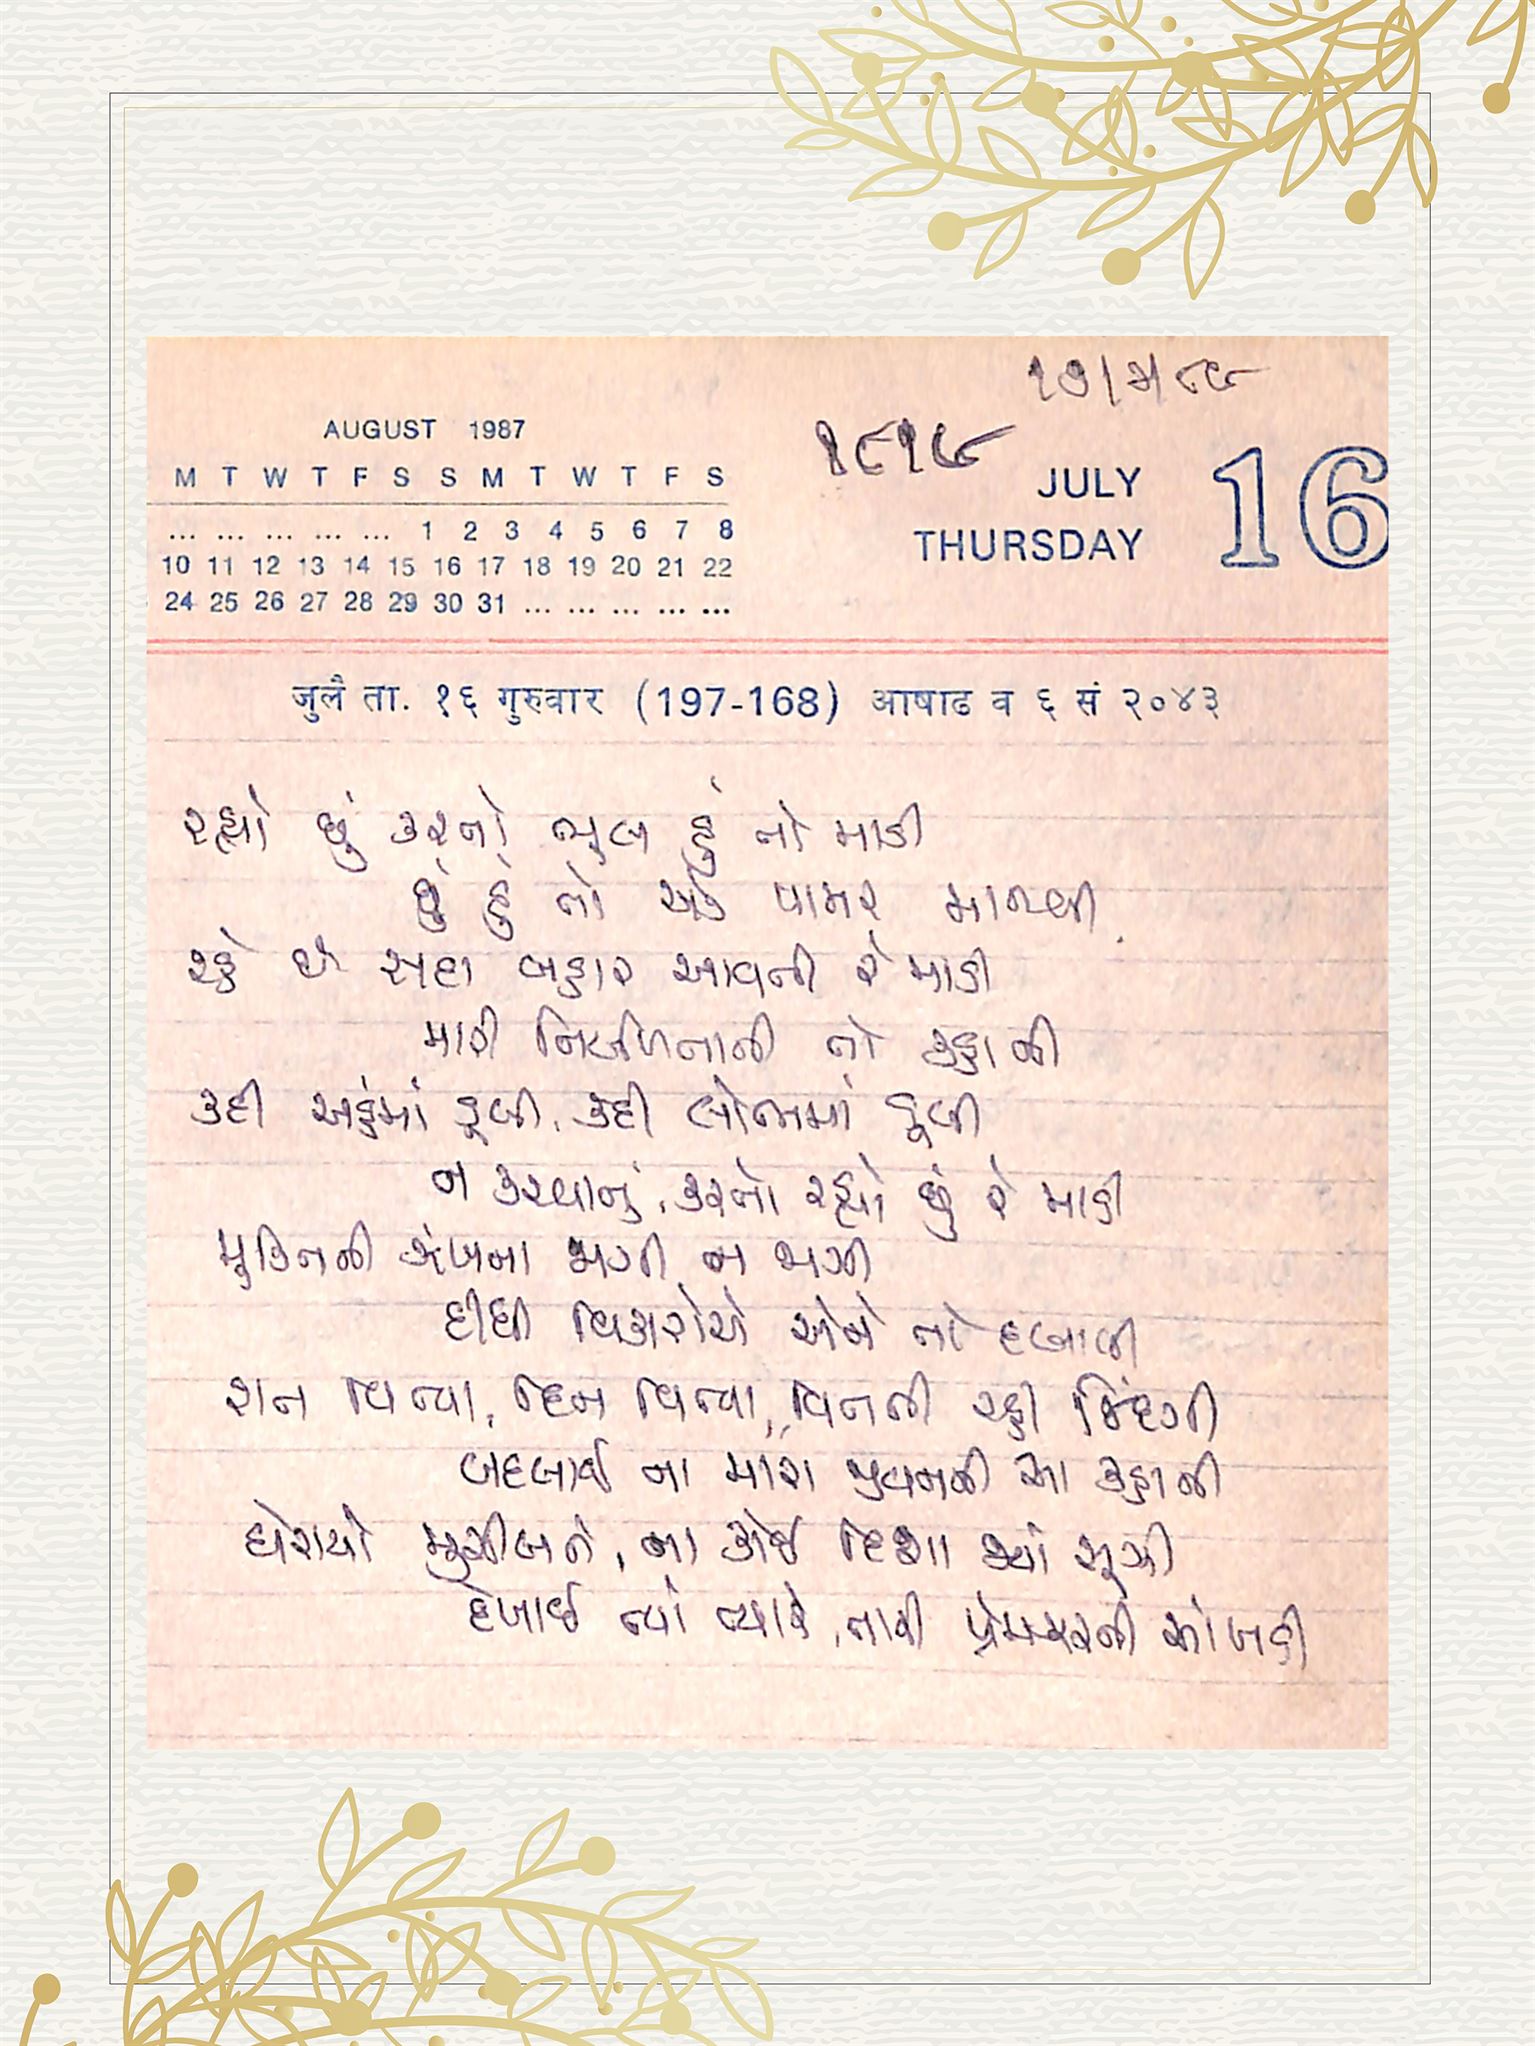 ૧૭/૫/૮૯
૧૮૧૯
AUGUST 1987
M T W T F S S M T W T F S
... ... ... ... ... 1 2 3 4 5 6 7 8
10 11 12 13 14 15 16 17 18 19 20 21 22
24 25 26 27 28 29 30 31 ... ... ... ... ...
JULY 16
THURSDAY
जुलै ता. १६ गुरुवार (197-168) आषाढ व ६ सं २०४३
રહ્યો છું કરતો ભૂલ હું તો માડી
છું હું તો એક પામર માનવી
રહે છે સદા બહાર આવતી રે માડી
મારી નિર્બળતાની તો કહાની
કદી અહંમાં ડૂબી, કદી લોભમાં ડૂબી
ન કરવાનું, કરતો રહ્યો છું રે માડી
મુક્તિની ઝંખના જાગી ન જાગી
દીધી વિકારોએ એને તો દબાવી
રાત વિત્યા, દિન વિત્યા, વિતતી રહી જિંદગી
બદલાઈ ના મારા જીવનની આ કહાની
ઘેરાયો મુસીબતે, ના કોઈ દિશા જ્યાં સૂઝી
દેખાઈ ત્યાં ત્યારે, તારી પ્રેમભરતી આંખડી